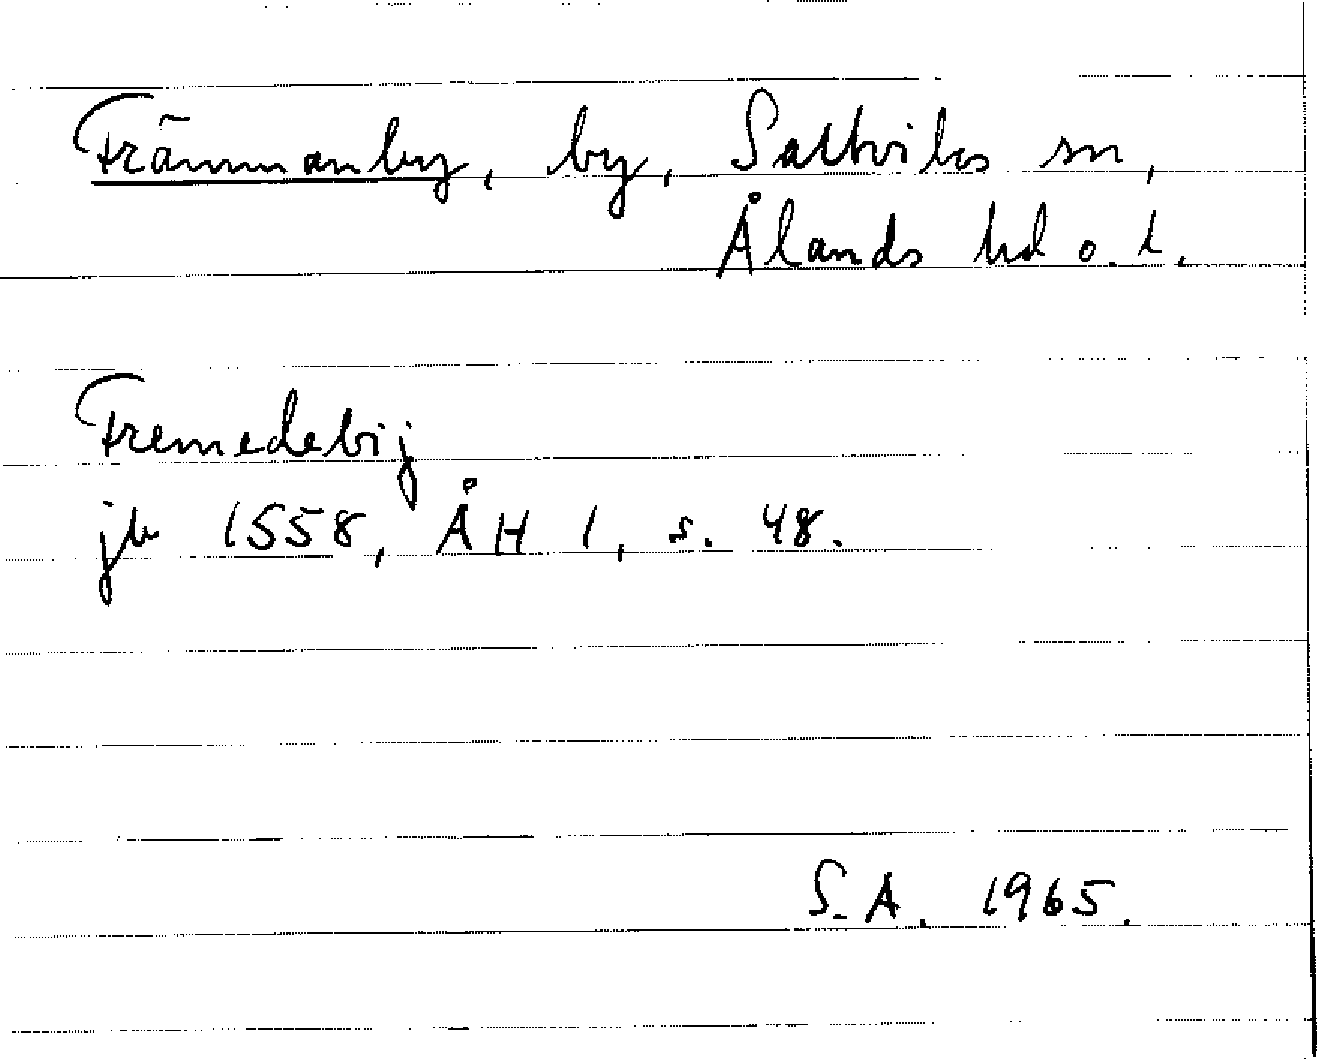 Främmanby, by, Saltviks sn,
Ålands hd o. l.
Fremedebij
jb 1558, ÅH 1, s. 48.
S.A. 1965.